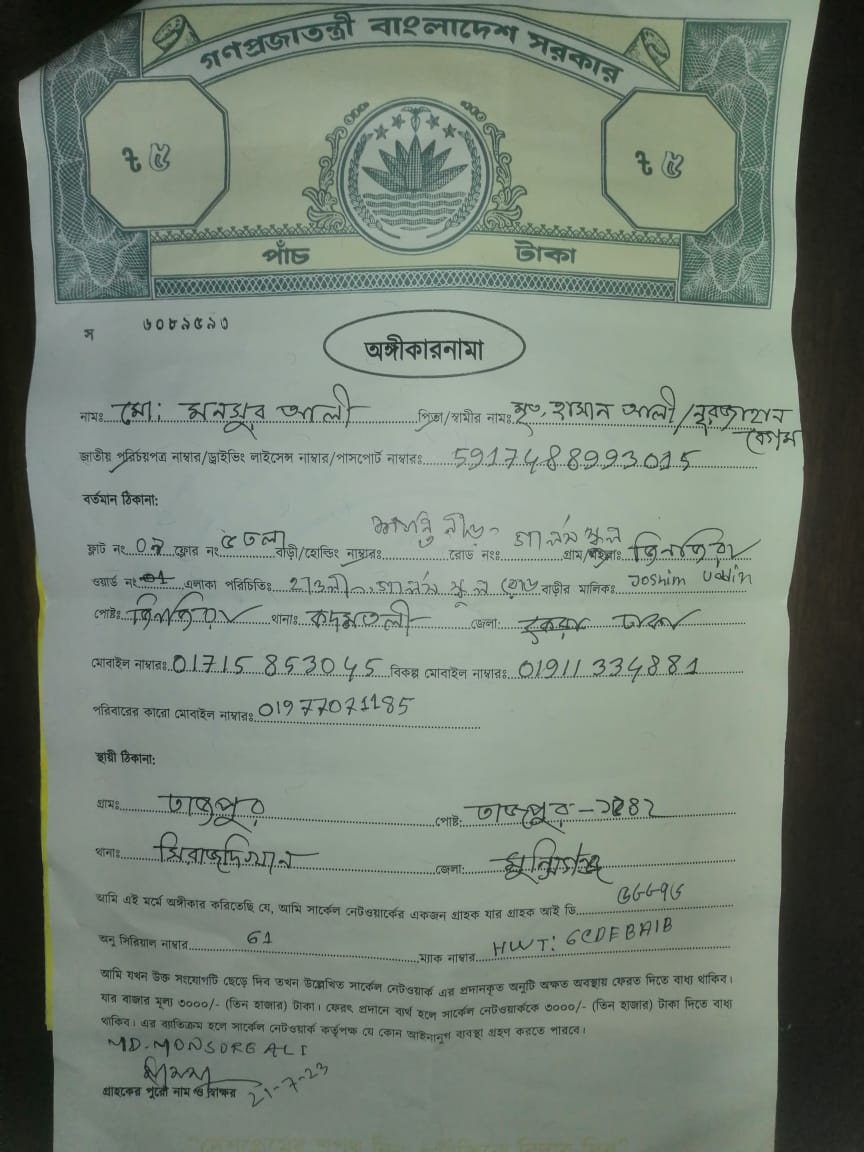 গণপ্রজাতন্ত্রী বাংলাদেশ সরকার
৳ ৫ ৳ ৫
পাঁচ টাকা
স ৬০৮৯৫৯৩
অঙ্গীকারনামা
নামঃ মো: মনসুর আলী পিতা/স্বামীর নামঃ মৃত. হাসান আলী/নুরজাহান বেগম
জাতীয় পরিচয়পত্র নাম্বার/ড্রাইভিং লাইসেন্স নাম্বার/পাসপোর্ট নাম্বারঃ 5917488993015
বর্তমান ঠিকানা:
ফ্লাট নং ফ্লোর নং ৫ তলা বাড়ী/হোল্ডিং নাম্বারঃ রোড নংঃ গার্লস স্কুল গ্রাম/মহল্লাঃ জিনজিরা
ওয়ার্ড নং এলাকা পরিচিতিঃ গার্লস স্কুল রোড বাড়ীর মালিকঃ Joshim Uddin
পোষ্টঃ জিনজিরা থানাঃ কদমতলী জেলা: ঢাকা
মোবাইল নাম্বারঃ 01715 853045 বিকল্প মোবাইল নাম্বারঃ 01911 334881
পরিবারের কারো মোবাইল নাম্বারঃ 01977071185
স্থায়ী ঠিকানা:
গ্রামঃ তাজপুর পোষ্ট: তাজপুর
থানাঃ সিরাজদিখান জেলা: মুন্সিগঞ্জ
আমি এই মর্মে অঙ্গীকার করিতেছি যে, আমি সার্কেল নেটওয়ার্কের একজন গ্রাহক যার গ্রাহক আই ডি
অনু সিরিয়াল নাম্বার 61 ম্যাক নাম্বার HWT: 6CDEBA1B
আমি যখন উক্ত সংযোগটি ছেড়ে দিব তখন উল্লেখিত সার্কেল নেটওয়ার্ক এর প্রদানকৃত অনুটি অক্ষত অবস্থায় ফেরত দিতে বাধ্য থাকিব।
যার বাজার মূল্য ৩০০০/- (তিন হাজার) টাকা। ফেরৎ প্রদানে ব্যর্থ হলে সার্কেল নেটওয়ার্ককে ৩০০০/- (তিন হাজার) টাকা দিতে বাধ্য
থাকিব। এর ব্যতিক্রম হলে সার্কেল নেটওয়ার্ক কর্তৃপক্ষ যে কোন আইনানুগ ব্যবস্থা গ্রহণ করতে পারবে।
MD. MONSORE ALI
গ্রাহকের পুরো নাম ও স্বাক্ষর 21-7-23